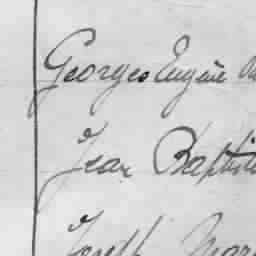 Georges Eugène
Jean Baptiste
Joseph Mar